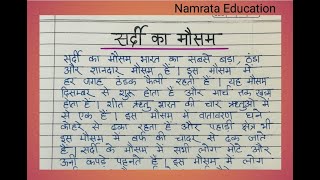 Namrata Education
सर्दी का मौसम
सर्दी का मौसम भारत का सबसे बड़ा, ठंडा
और शानदार मौसम है। इस मौसम में
हर जगह ठंडक फैली रहती है। यह मौसम
दिसम्बर से शुरू होता है और मार्च तक खत्म
होता है। शीत ऋतु भारत की चार ऋतुओं में
से एक हैं। इस मौसम में वातावरण घने
कोहरे से ढका रहता है और पहाड़ी क्षेत्र भी
इस मौसम में बर्फ की चादर से ढक जाते
है। सर्दी के मौसम में सभी लोग मोटे और
ऊनी कपड़े पहनते हैं। इस मौसम में लोग